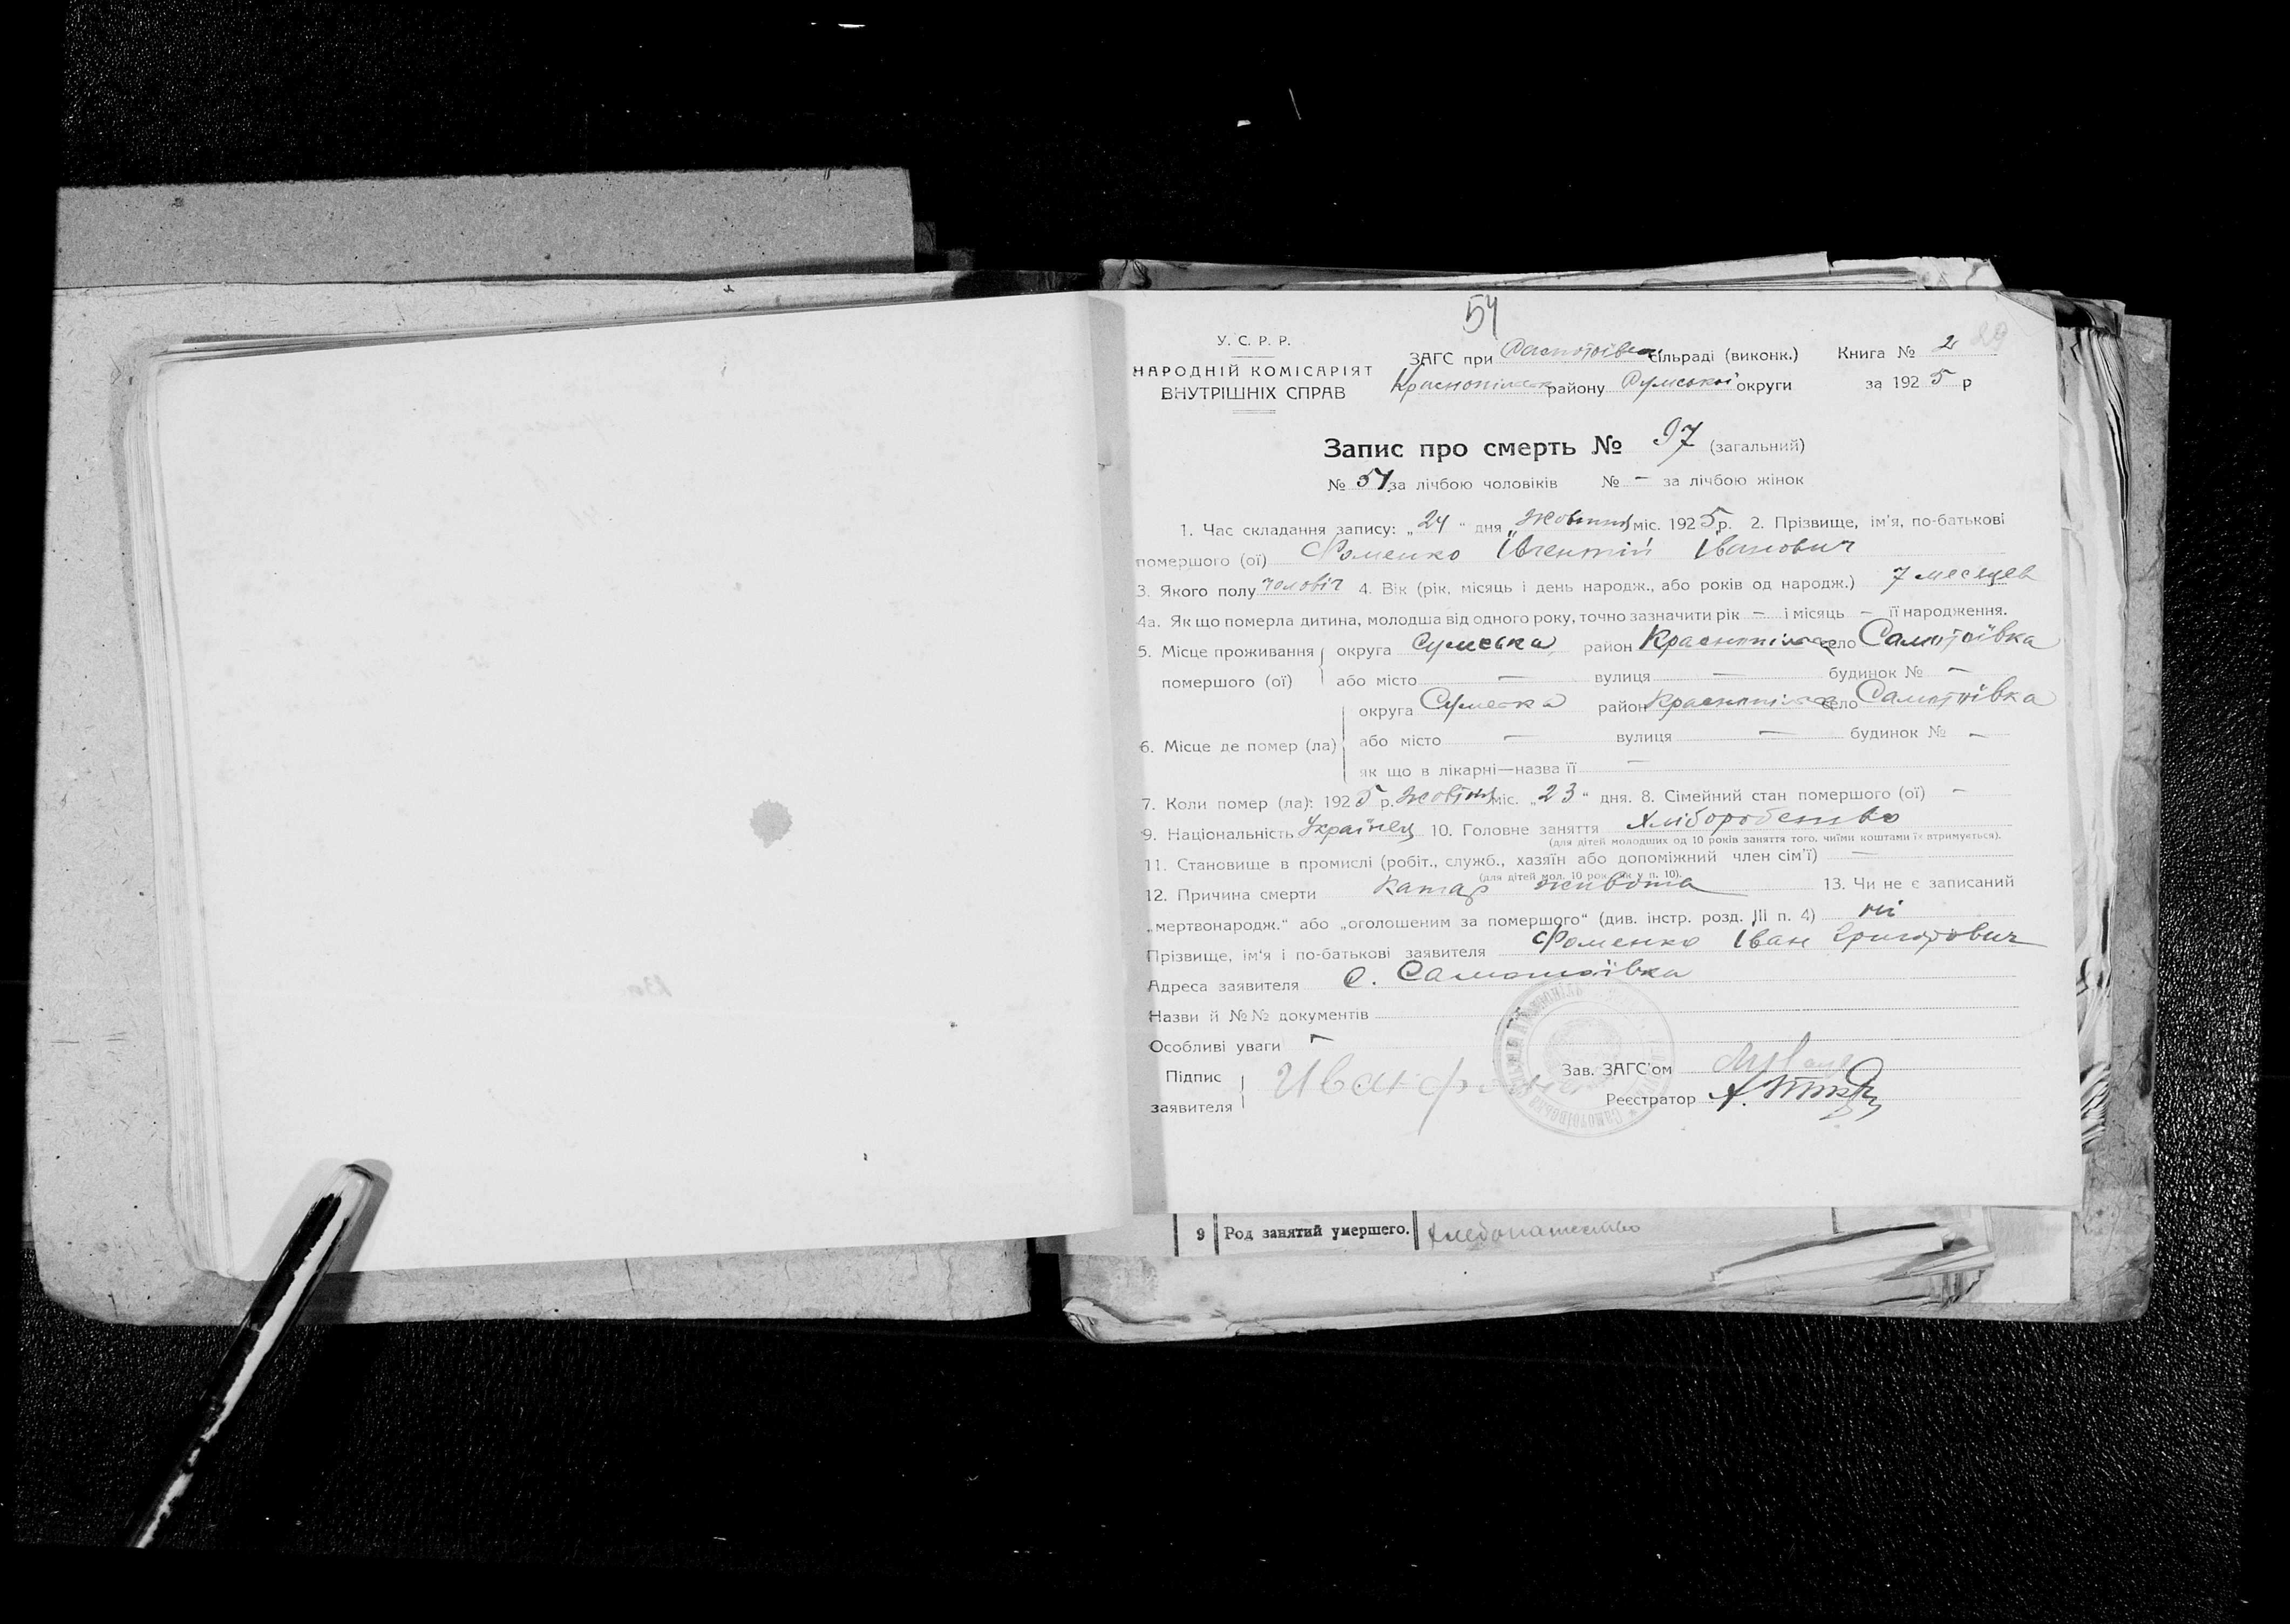 54
У. С. Р. Р.
НАРОДНІЙ КОМІСАРІЯТ
ВНУТРІШНІХ СПРАВ
ЗАГС при Самотоївск сільраді (виконк.) Книга № 2 29
Краснопільск району Сумської округи за 1925 р
Запис про смерть № 97 (загальний)
№ 54 за лічбою чоловіків № — за лічбою жінок
1. Час складання запису: „24“ дня „жовтня міс. 1925 р. 2. Прізвище, ім'я, по-батькові
помершого (ої) Фоменко Іванович
3. Якого полу чоловіч 4. Вік (рік, місяць і день народж., або років од народж.) 7 месяцев
4а. Як що померла дитина, молодша від одного року, точно зазначити рік — і місяць — її народження.
5. Місце проживання округа Сумська район Краснопільск село Самотоївка
помершого (ої) або місто — вулиця — будинок № —
округа Сумска район Краснопільск село Самотоївка
6. Місце де помер (ла) або місто — вулиця — будинок № —
як що в лікарні—назва її —
7. Коли помер (ла): 1925 р. жовтня міс. „23“ дня. 8. Сімейний стан помершого (ої) —
9. Національність Українец 10. Головне заняття Хліборобство
(для дітей молодших од 10 років заняття того, чиїми коштами їх втримується).
11. Становище в промислі (робіт., служб., хазяїн або допоміжний член сім'ї) —
(для дітей мол. 10 рок. як у п. 10).
12. Причина смерти Катар живота 13. Чи не є записаний
„мертвонародж.“ або „оголошеним за помершого“ (див. інстр. розд. III п. 4) ні
Прізвище, ім'я і по-батькові заявителя Фоменко Іван Григорович
Адреса заявителя с. Самотоївка
Назви й №№ документів
Особливі уваги —
Підпис
заявителя Иван
Зав. ЗАГС'ом
Реєстратор
9 Род занятий умершего. хлебопашество